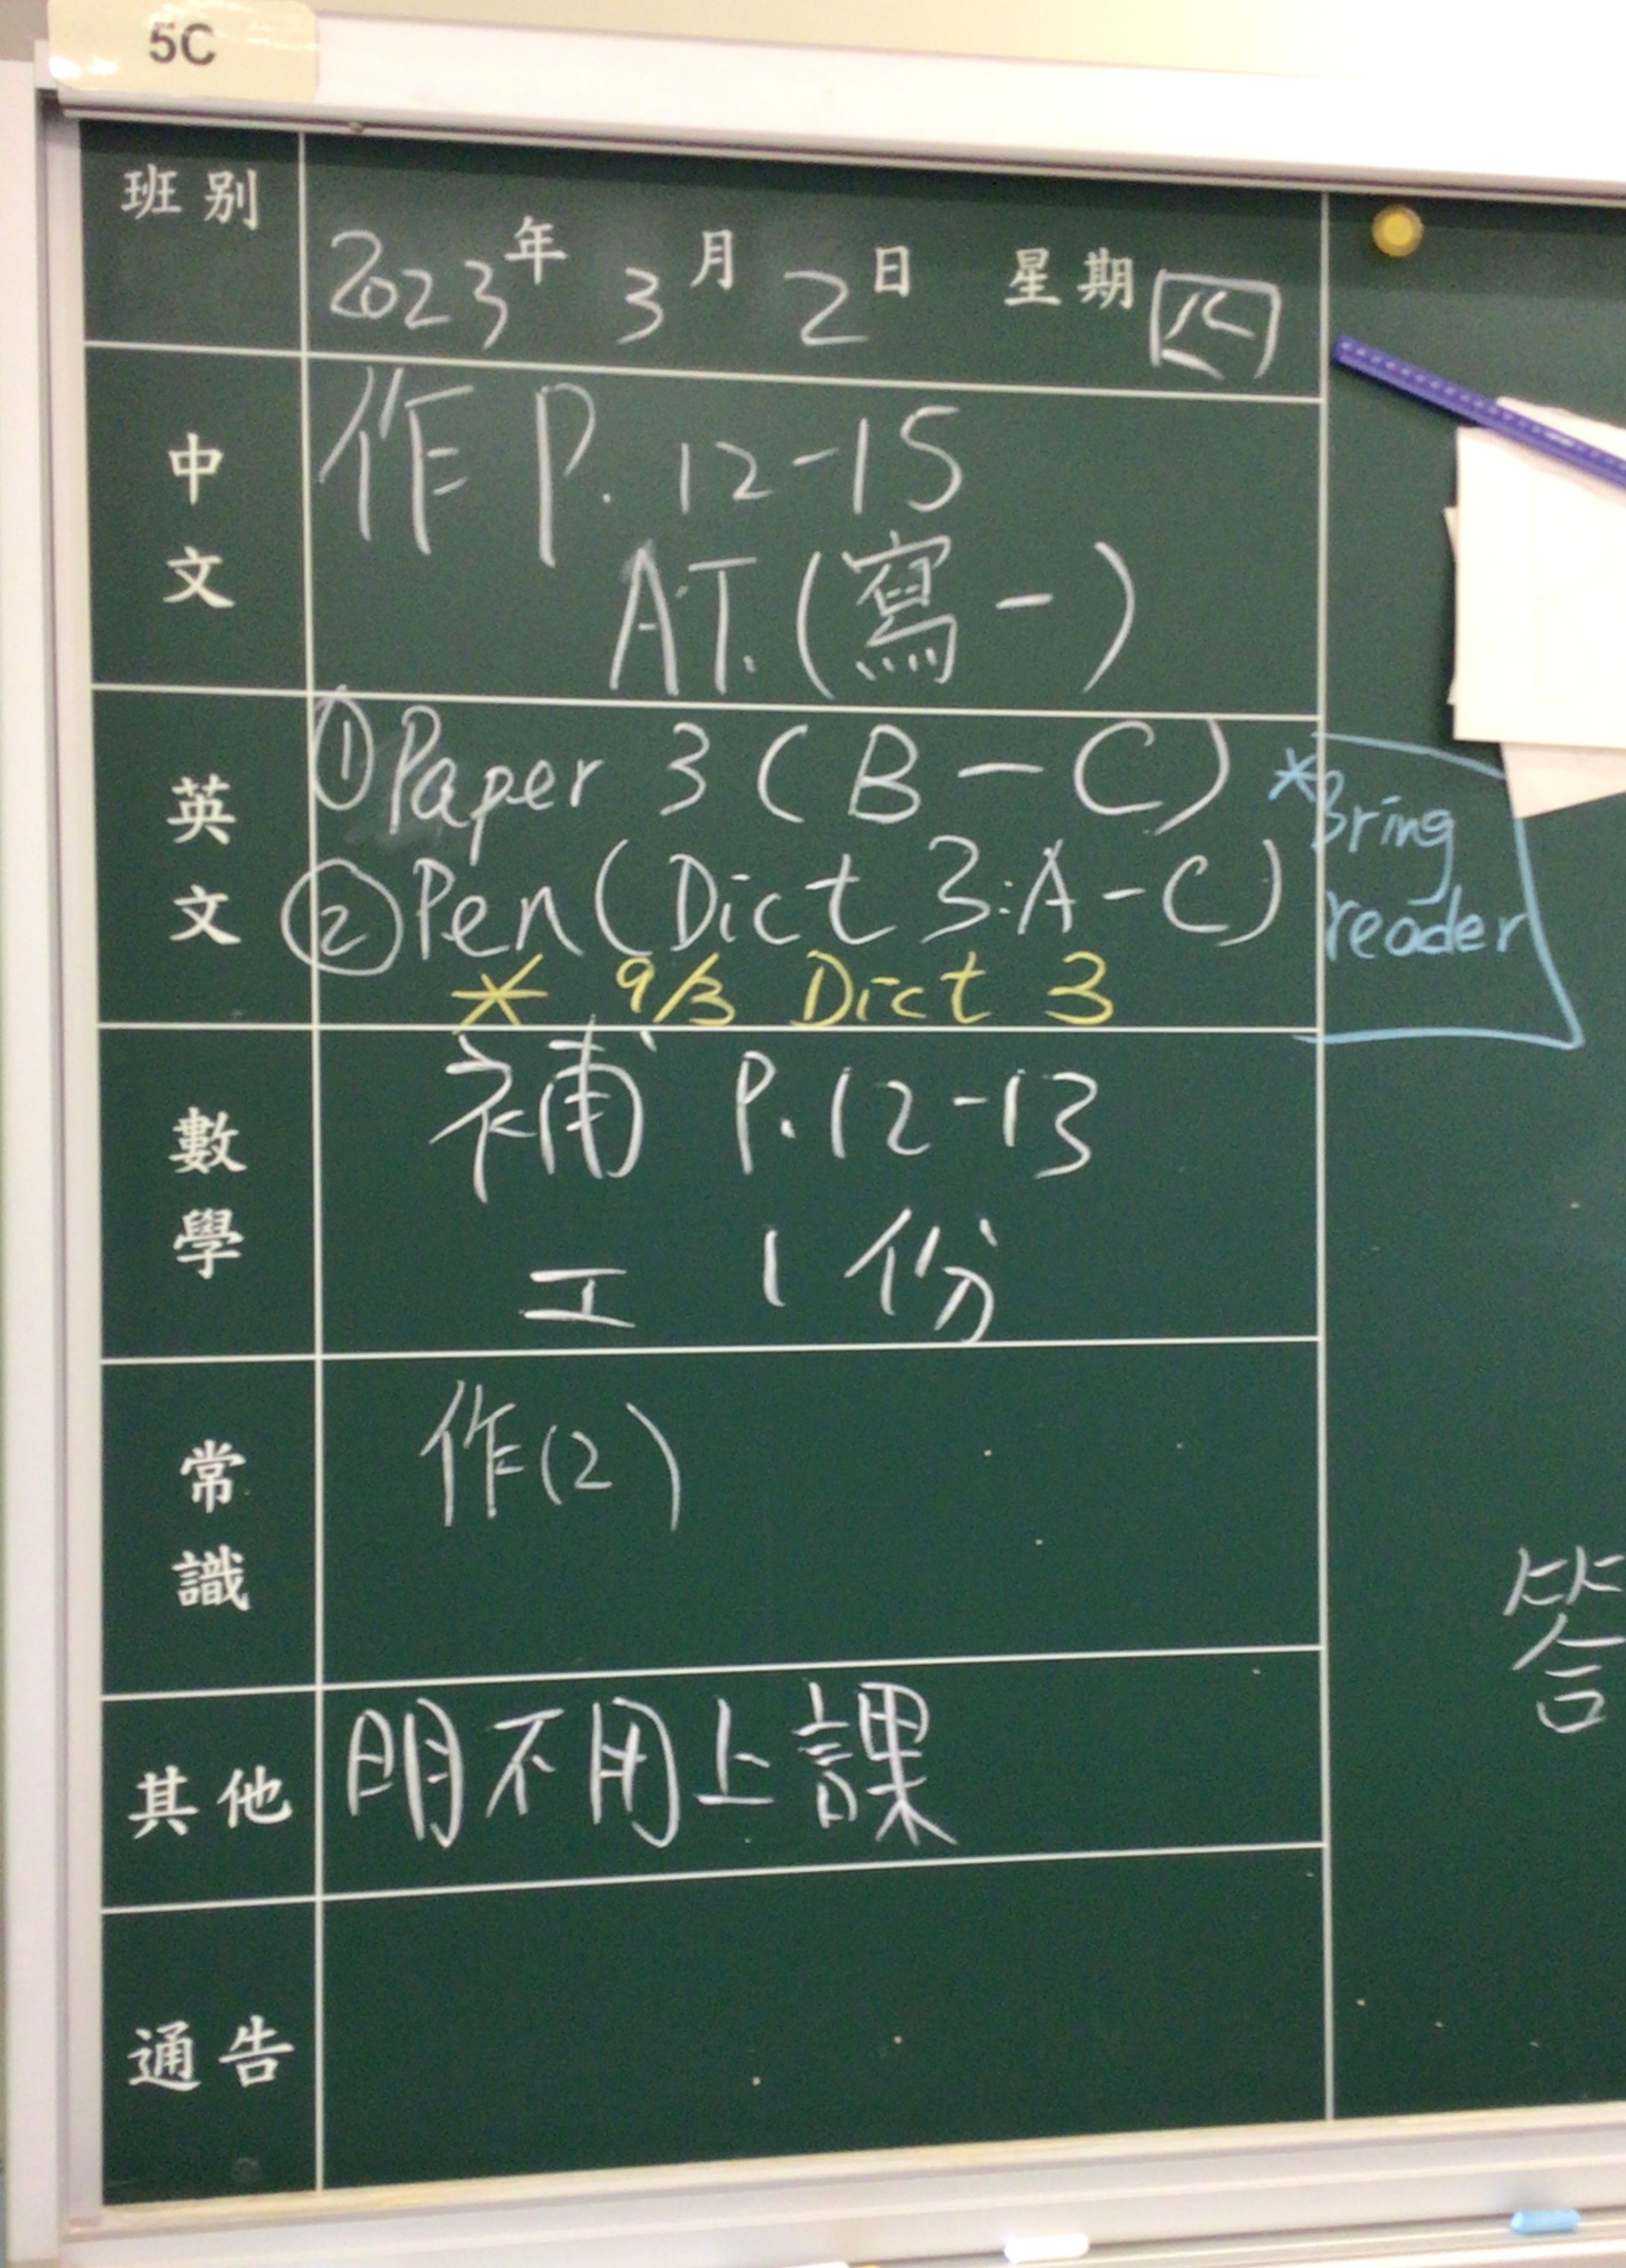 5C
班別
2023年 3月 2日 星期四
中文
作 P. 12-15
A.T. (寫一)
英文
①Paper 3 (B-C)
②Pen (Dict 3:A-C)
* 9/3 Dict 3
*Bring
reader
數學
補 P.12-13
工 1 份
常識
作(2)
答
其他
明不用上課
通告